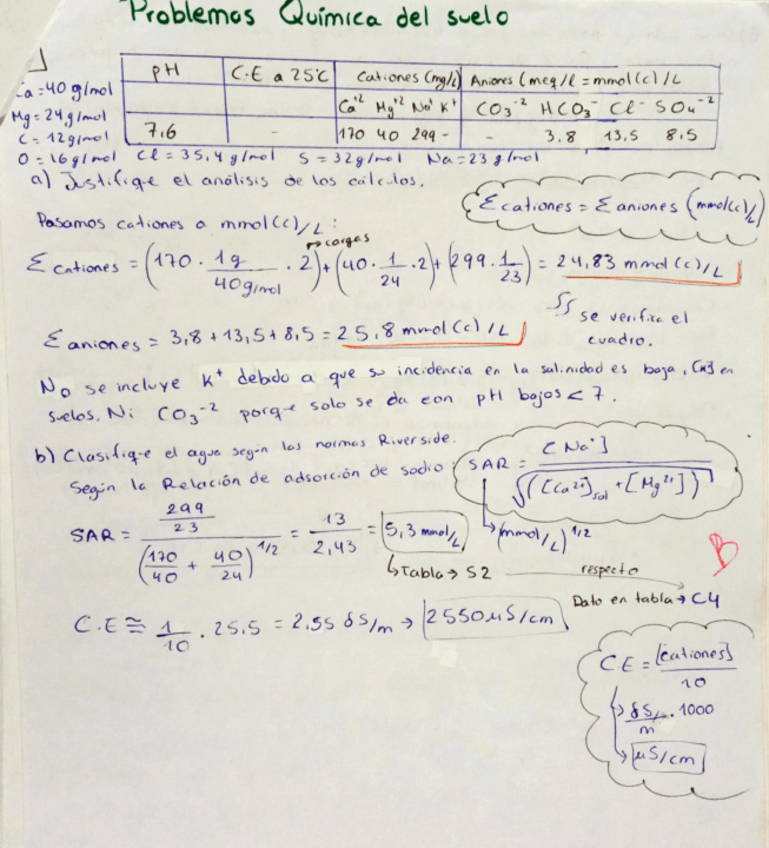 Problemas Química del suelo
1
Ca = 40 g/mol
Mg = 24 g/mol
C = 12 g/mol
O = 16 g/mol Cl = 35,4 g/mol S = 32 g/mol Na = 23 g/mol
pH C.E a 25°C Cationes (mg/L) Aniones (meq/l = mmol(c)/L
Ca+2 Mg+2 Na+ K+ CO3-2 HCO3- Cl- SO4-2
7,6 - 170 40 299 - - 3,8 13,5 8,5
a) Justifique el análisis de los cálculos.
Σ cationes = Σ aniones (mmol(c)/L)
Pasamos cationes a mmol(c)/L:
→ cargas
Σ cationes = (170 · 1g/40g/mol · 2) + (40 · 1/24 · 2) + (299 · 1/23) = 24,83 mmol(c)/L
se verifica el
cuadro.
Σ aniones = 3,8 + 13,5 + 8,5 = 25,8 mmol(c)/L
No se incluye K+ debido a que su incidencia en la salinidad es baja, en
suelos. Ni CO3-2 porque solo se da con pH bajos < 7.
b) Clasifique el agua según las normas Riverside.
Según la Relación de adsorción de sodio:
SAR = [Na+] / √([Ca2+]sol + [Mg2+])
→ (mmol/L)^1/2
SAR = (299/23) / (170/40 + 40/24)^1/2 = 13/2,43 = 5,3 mmol/L
↳ Tabla → S2 respecto
Dato en tabla → C4
C.E ≅ 1/10 · 25,5 = 2,55 dS/m → 2550 µS/cm
CE = [cationes]/10
→ dS/m · 1000
→ µS/cm